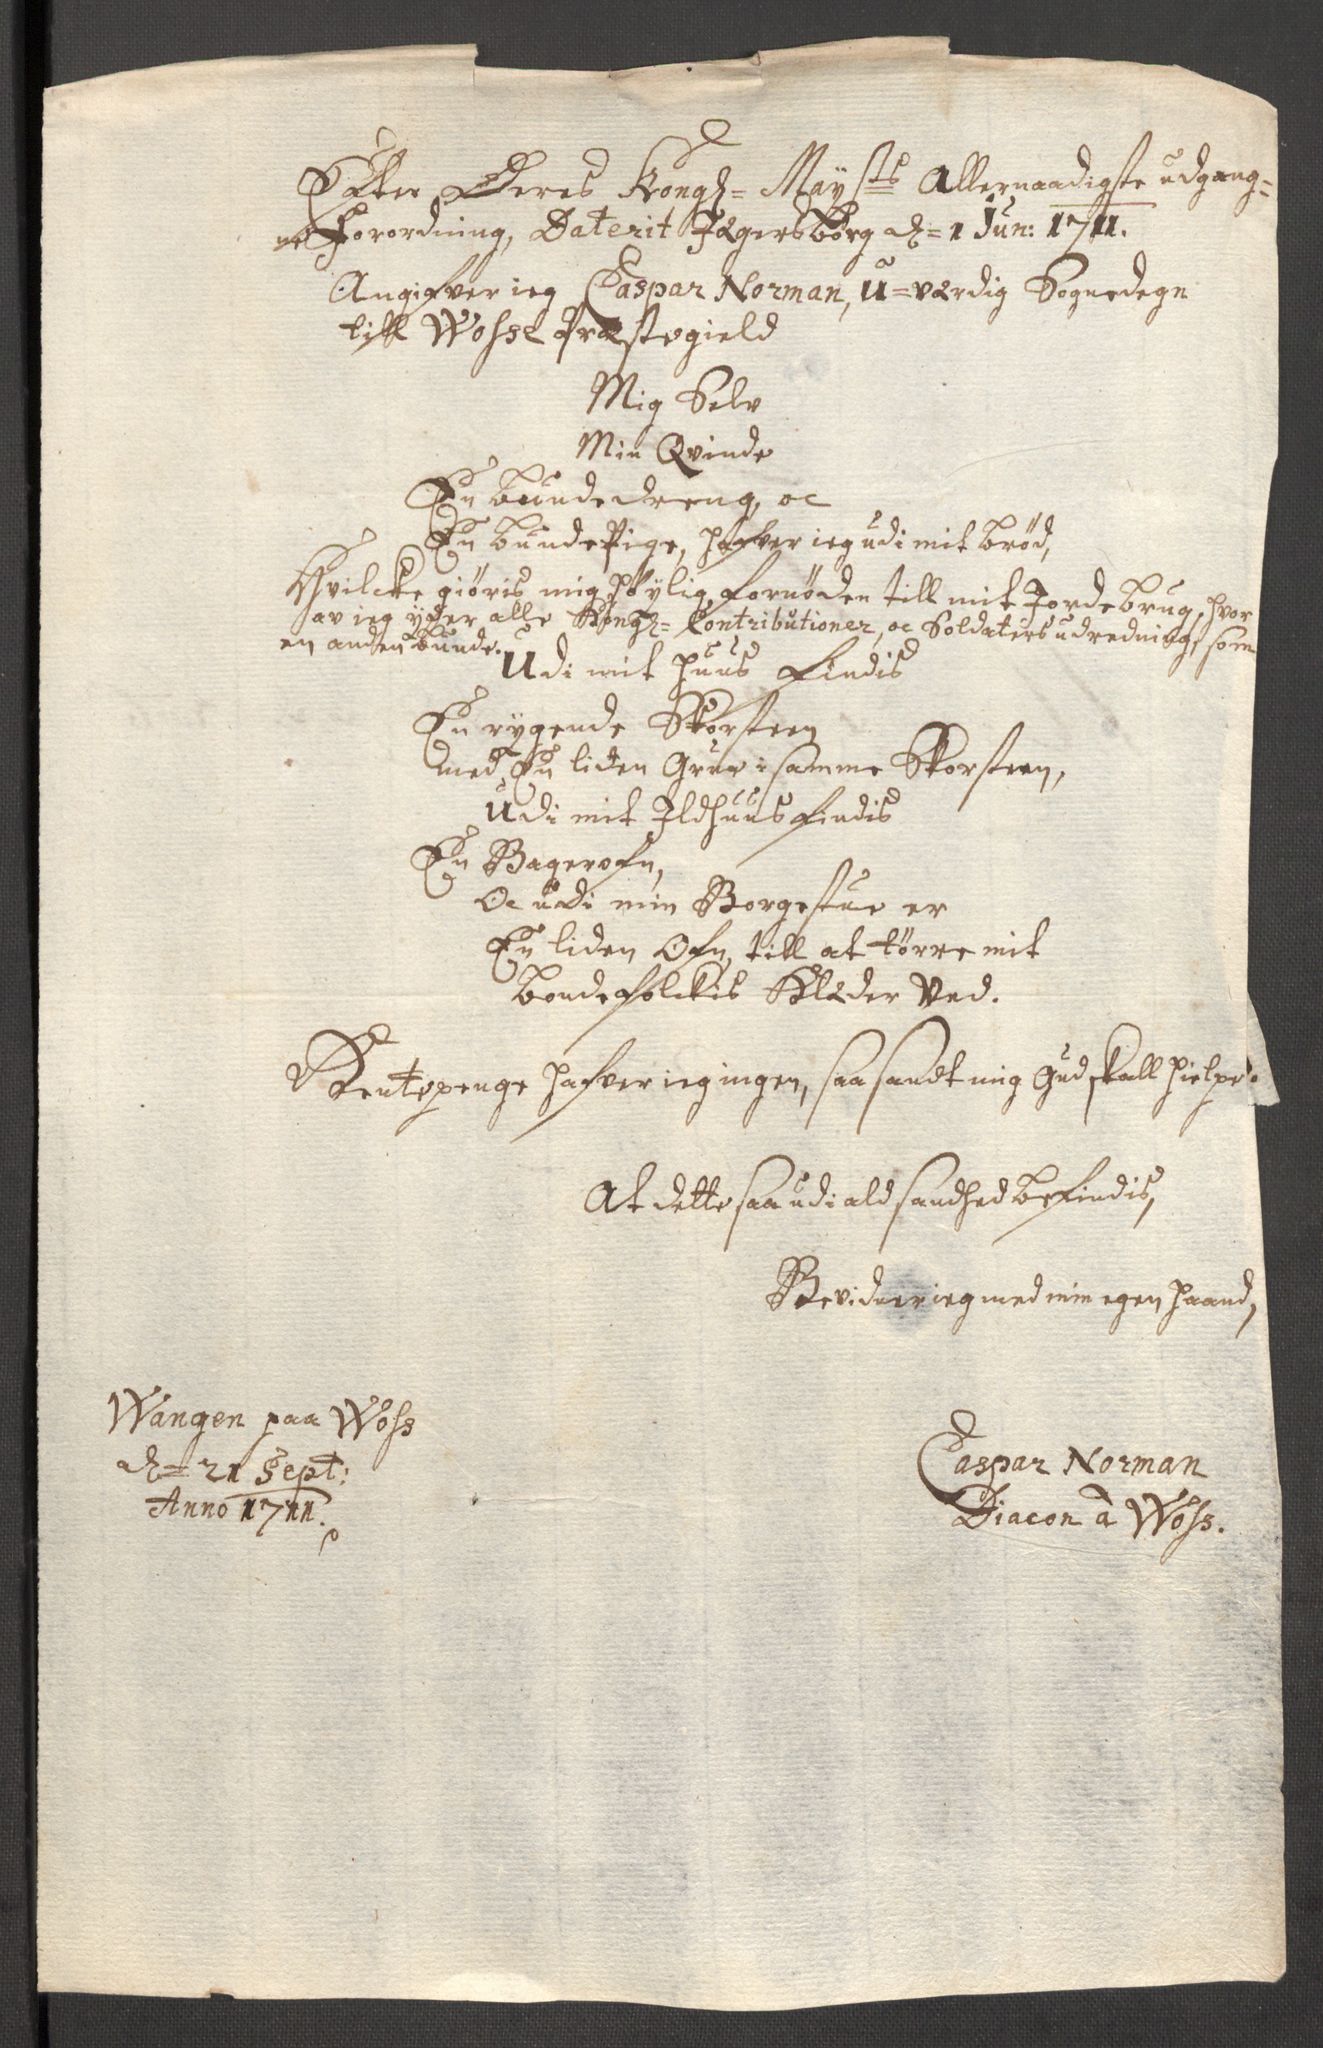 Effter Deres Kongl= Maysts Allernaadigste udgang=
ne Forordning, Daterit Jægersborg d= 1 Jun: 1711.
Angifver ieg Caspar Norman, u=værdig Sognedegn
till Wosse Præstegield
Mig Selv
Min Qvinde
En bundedreng, oc
En bunde Pige, hafver ieg udi mit brød,
Hvilcke giøris mig høylig fornøden till mit Jordebrug, hvor
av ieg yder alle Kongl= Contributioner, oc Soldaters udredning, som
en anden bunde.
Udi mit huus findis
En rygende Skorsteen
med En liden Grue i samme Skorsteen,
Udi mit Ildhuus findis
En Bagerofn,
Oc udi min Borgestue er
En liden Ofn, till at tørre mit
bondefolckis Klæder Ved.
Rentepenge hafver ieg ingen, saa sandt mig Gud skall hielpe.
At dette saa udi ald sandhed befindis,
Bevidner ieg med min egen haand,
Wangen paa Woss
d= 21 Sept:
Anno 1711.
Caspar Norman
Diacon â Woss.